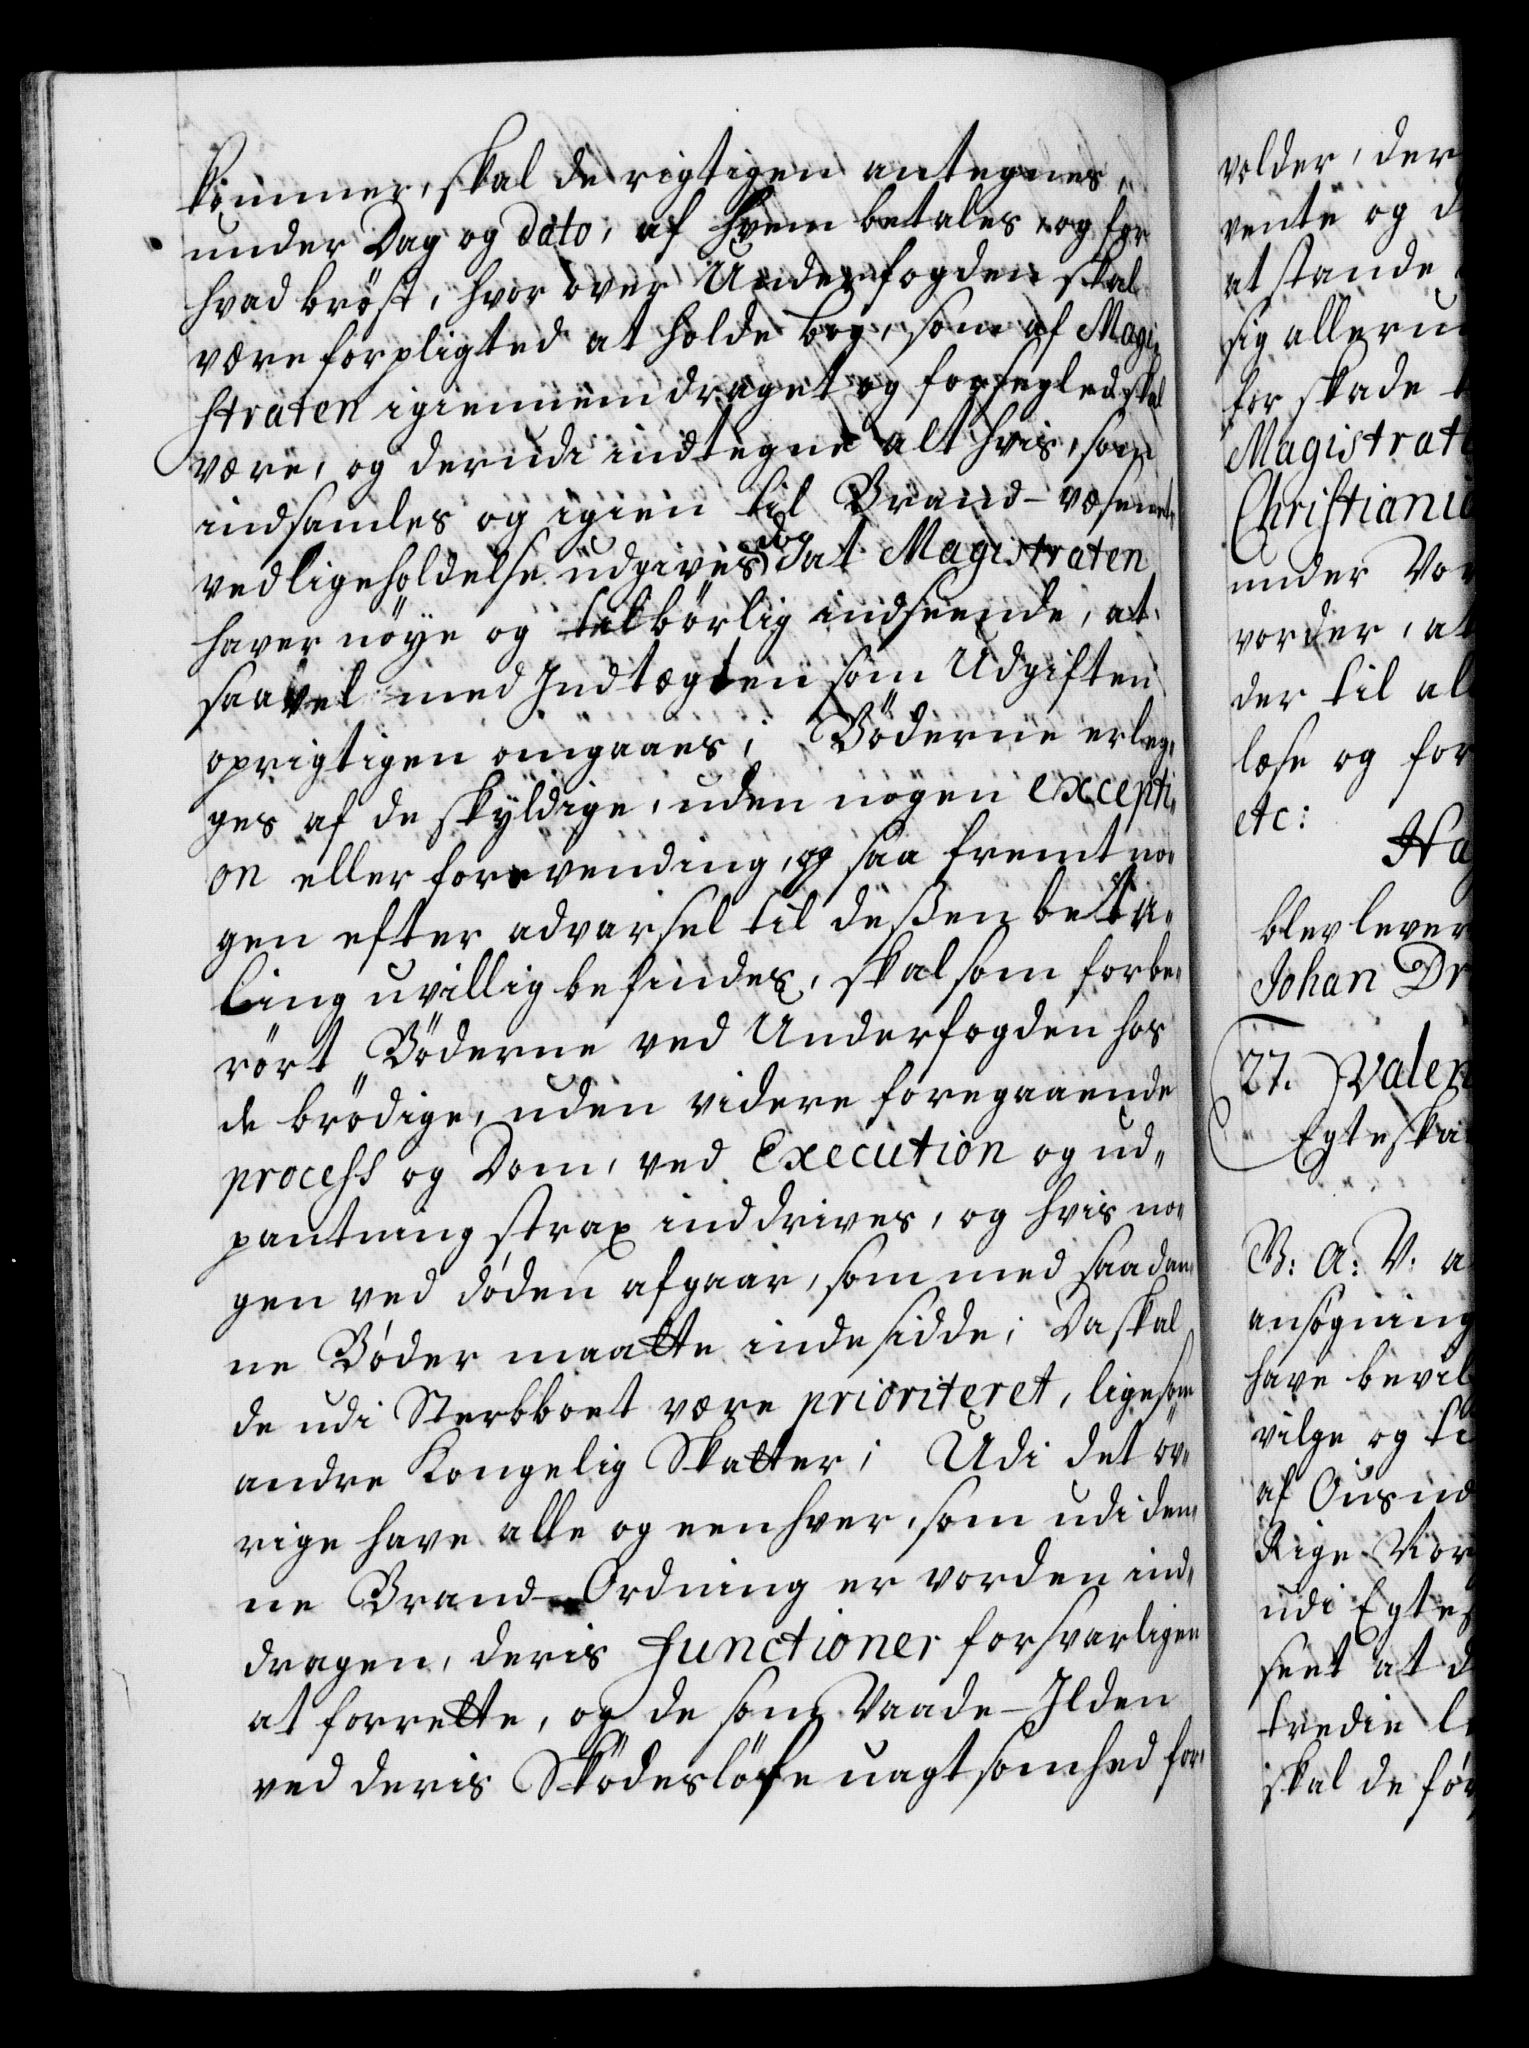 kommer, skal de rigtigen antegnes,
under Dag og dato, af hvem betales, og for
hvad bröst, hvor over Underfogden skal
være forpligted at holde bog, som af Magi¬
straten igiennemdraget og forsegled skal
være, og derudi indtegne alt hvis, som
indsamles og igien til Brand-væsenets
vedligeholdelse udgives, dog at Magistraten
haver nöye og tilbörlig indseende, at
saavel med Indtægten som Udgiften
oprigtigen omgaaes; Böderne erleg¬
ges af de skyldige, uden nogen excepti¬
on eller forevending, og saa fremt no¬
gen efter advarsel til deßen beta¬
ling uvillig befindes, skal som forbe¬
rört Böderne ved Underfogden hos
de brödige, uden videre foregaaende
process og Dom, ved Execution og ud¬
pantning strax inddrives, og hvis no¬
gen ved döden afgaar, som med saadan¬
ne Böder maatte indesidde; Da skal
de udi Sterbboet være prioriteret, ligesom
andre Kongelig Skatter; Udi det öv¬
rige have alle og eenhver, som udi den¬
ne Brand-Ordning er vorden ind¬
dragen, deris Functioner forsvarligen
at forrette, og de som Vaade-Ilden
ved deris Sködeslöse uagtsomhed for¬
volder, der
vente og d
at stande
sig alleru
for skade
Magistrat
Christiani
under Vor
vorder, at
der til al
lose og for
etc:
Ha
blev lever
Johan Dr
27. Valen
Egteska
V: A: V: a
ansögning
have bevil
vilge og ti
af Ousind
Rige Nor
udi Egtes
seet at d
tredie l
skal de för